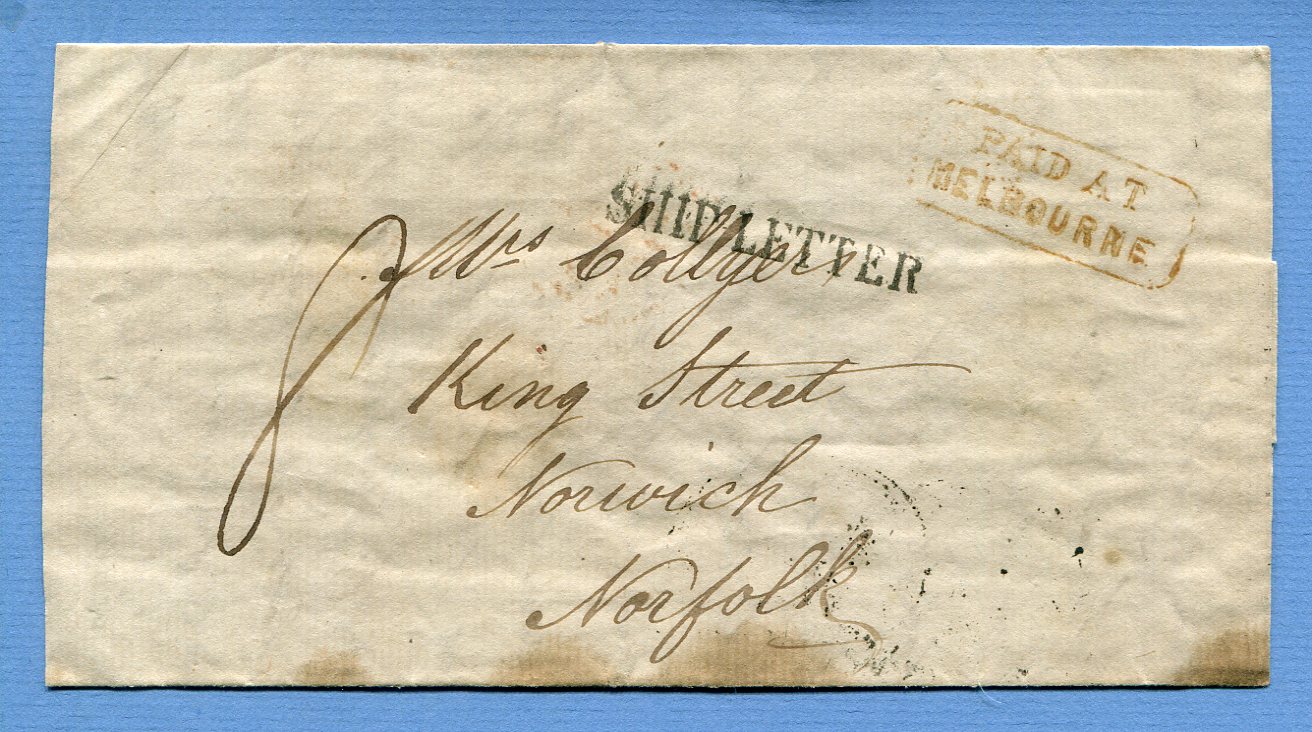 PAID AT
MELBOURNE
SHIP LETTER
8
Mrs Collyer
King Street
Norwich
Norfolk